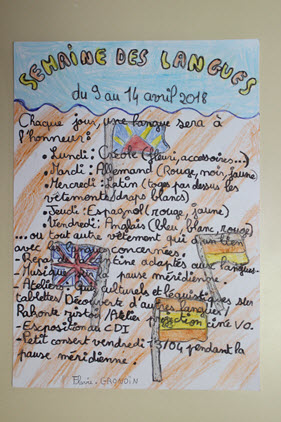 SEMAINE DES LANGUES
du 9 au 14 avril 2018
Chaque jour, une langue sera à
l'honneur:
• Lundi: Créole (fleuri, accessoires...)
• Mardi: Allemand (Rouge, noir, jaune)
• Mercredi: Latin (toges par dessus les
vêtements/draps blancs)
• Jeudi: Espagnol (rouge, jaune)
• Vendredi: Anglais (bleu, blanc, rouge)
... ou tout autre vêtement qui
avec concernées.
- tine adaptés aux langues
- Musique pause méridienne.
- Ateliers culturels et sur
tablettes/Découverte d'autres langues/
Rakonté zistoir/Atelier projection ciné VO.
- Exposition au CDI
- Petit consert vendredi 13/04 pendant la
pause méridienne.
GRONDIN